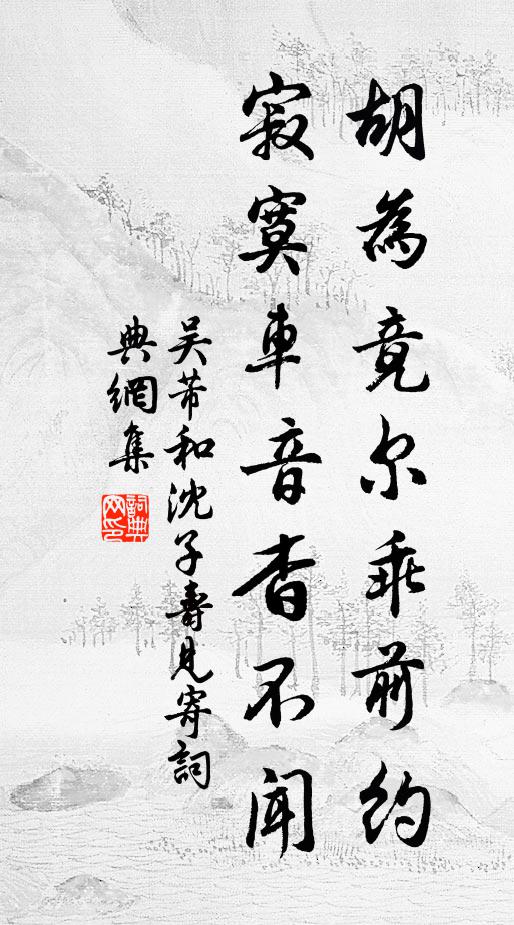 胡為竟尔乖前約
寂寞車音杳不聞
吴芾和沈子壽見寄詞
典網集
詞典网印